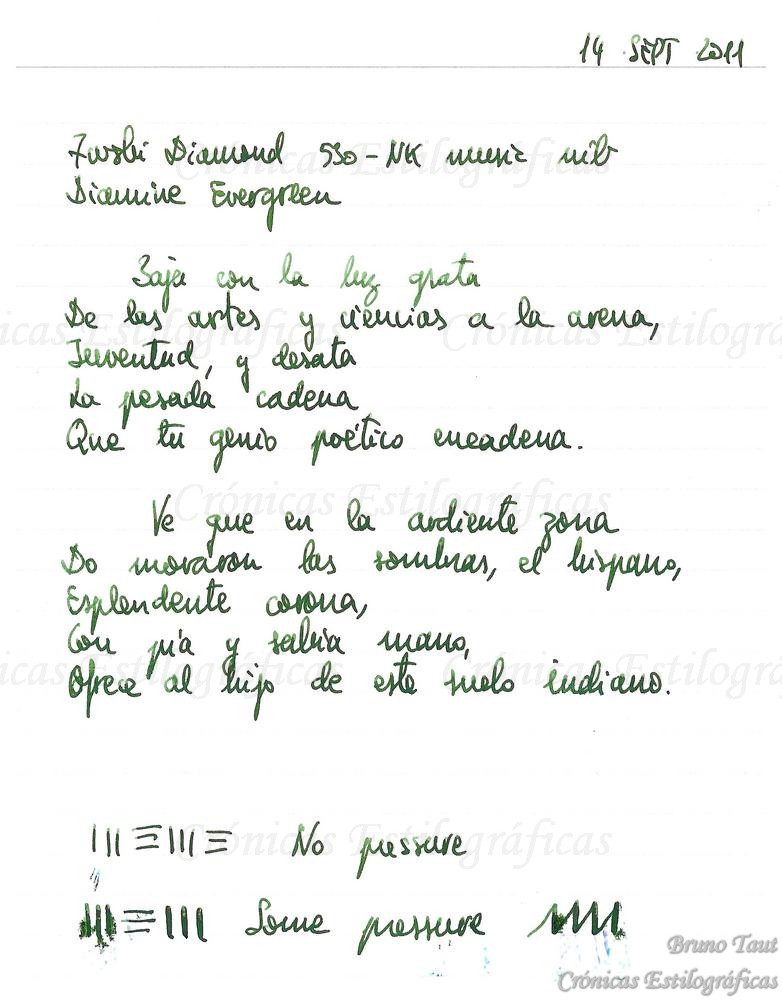 14 SEPT 2011
Fuyobi Diamond 530-NK music nib
Diamine Evergreen
Baja con la luz grata
De las artes y ciencias a la arena,
Juventud, y desata
La pesada cadena
Que tu genio poético encadena.
Ve que en la ardiente zona
Do moraron las sombras, el hispano,
Esplendente corona,
Con pía y sabia mano,
Ofrece al hijo de este suelo indiano.
No pressure
Some pressure
Bruno Taut
Crónicas Estilográficas